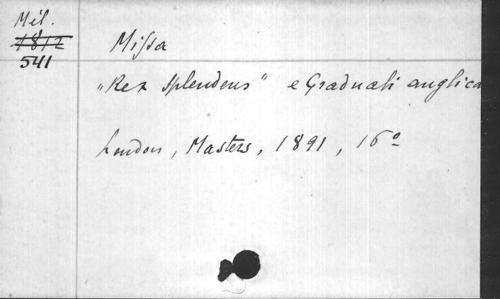 Mél.
1812
541
Missa
„Rex Splendens" e Graduali anglica
London, Masters, 1891, 16º